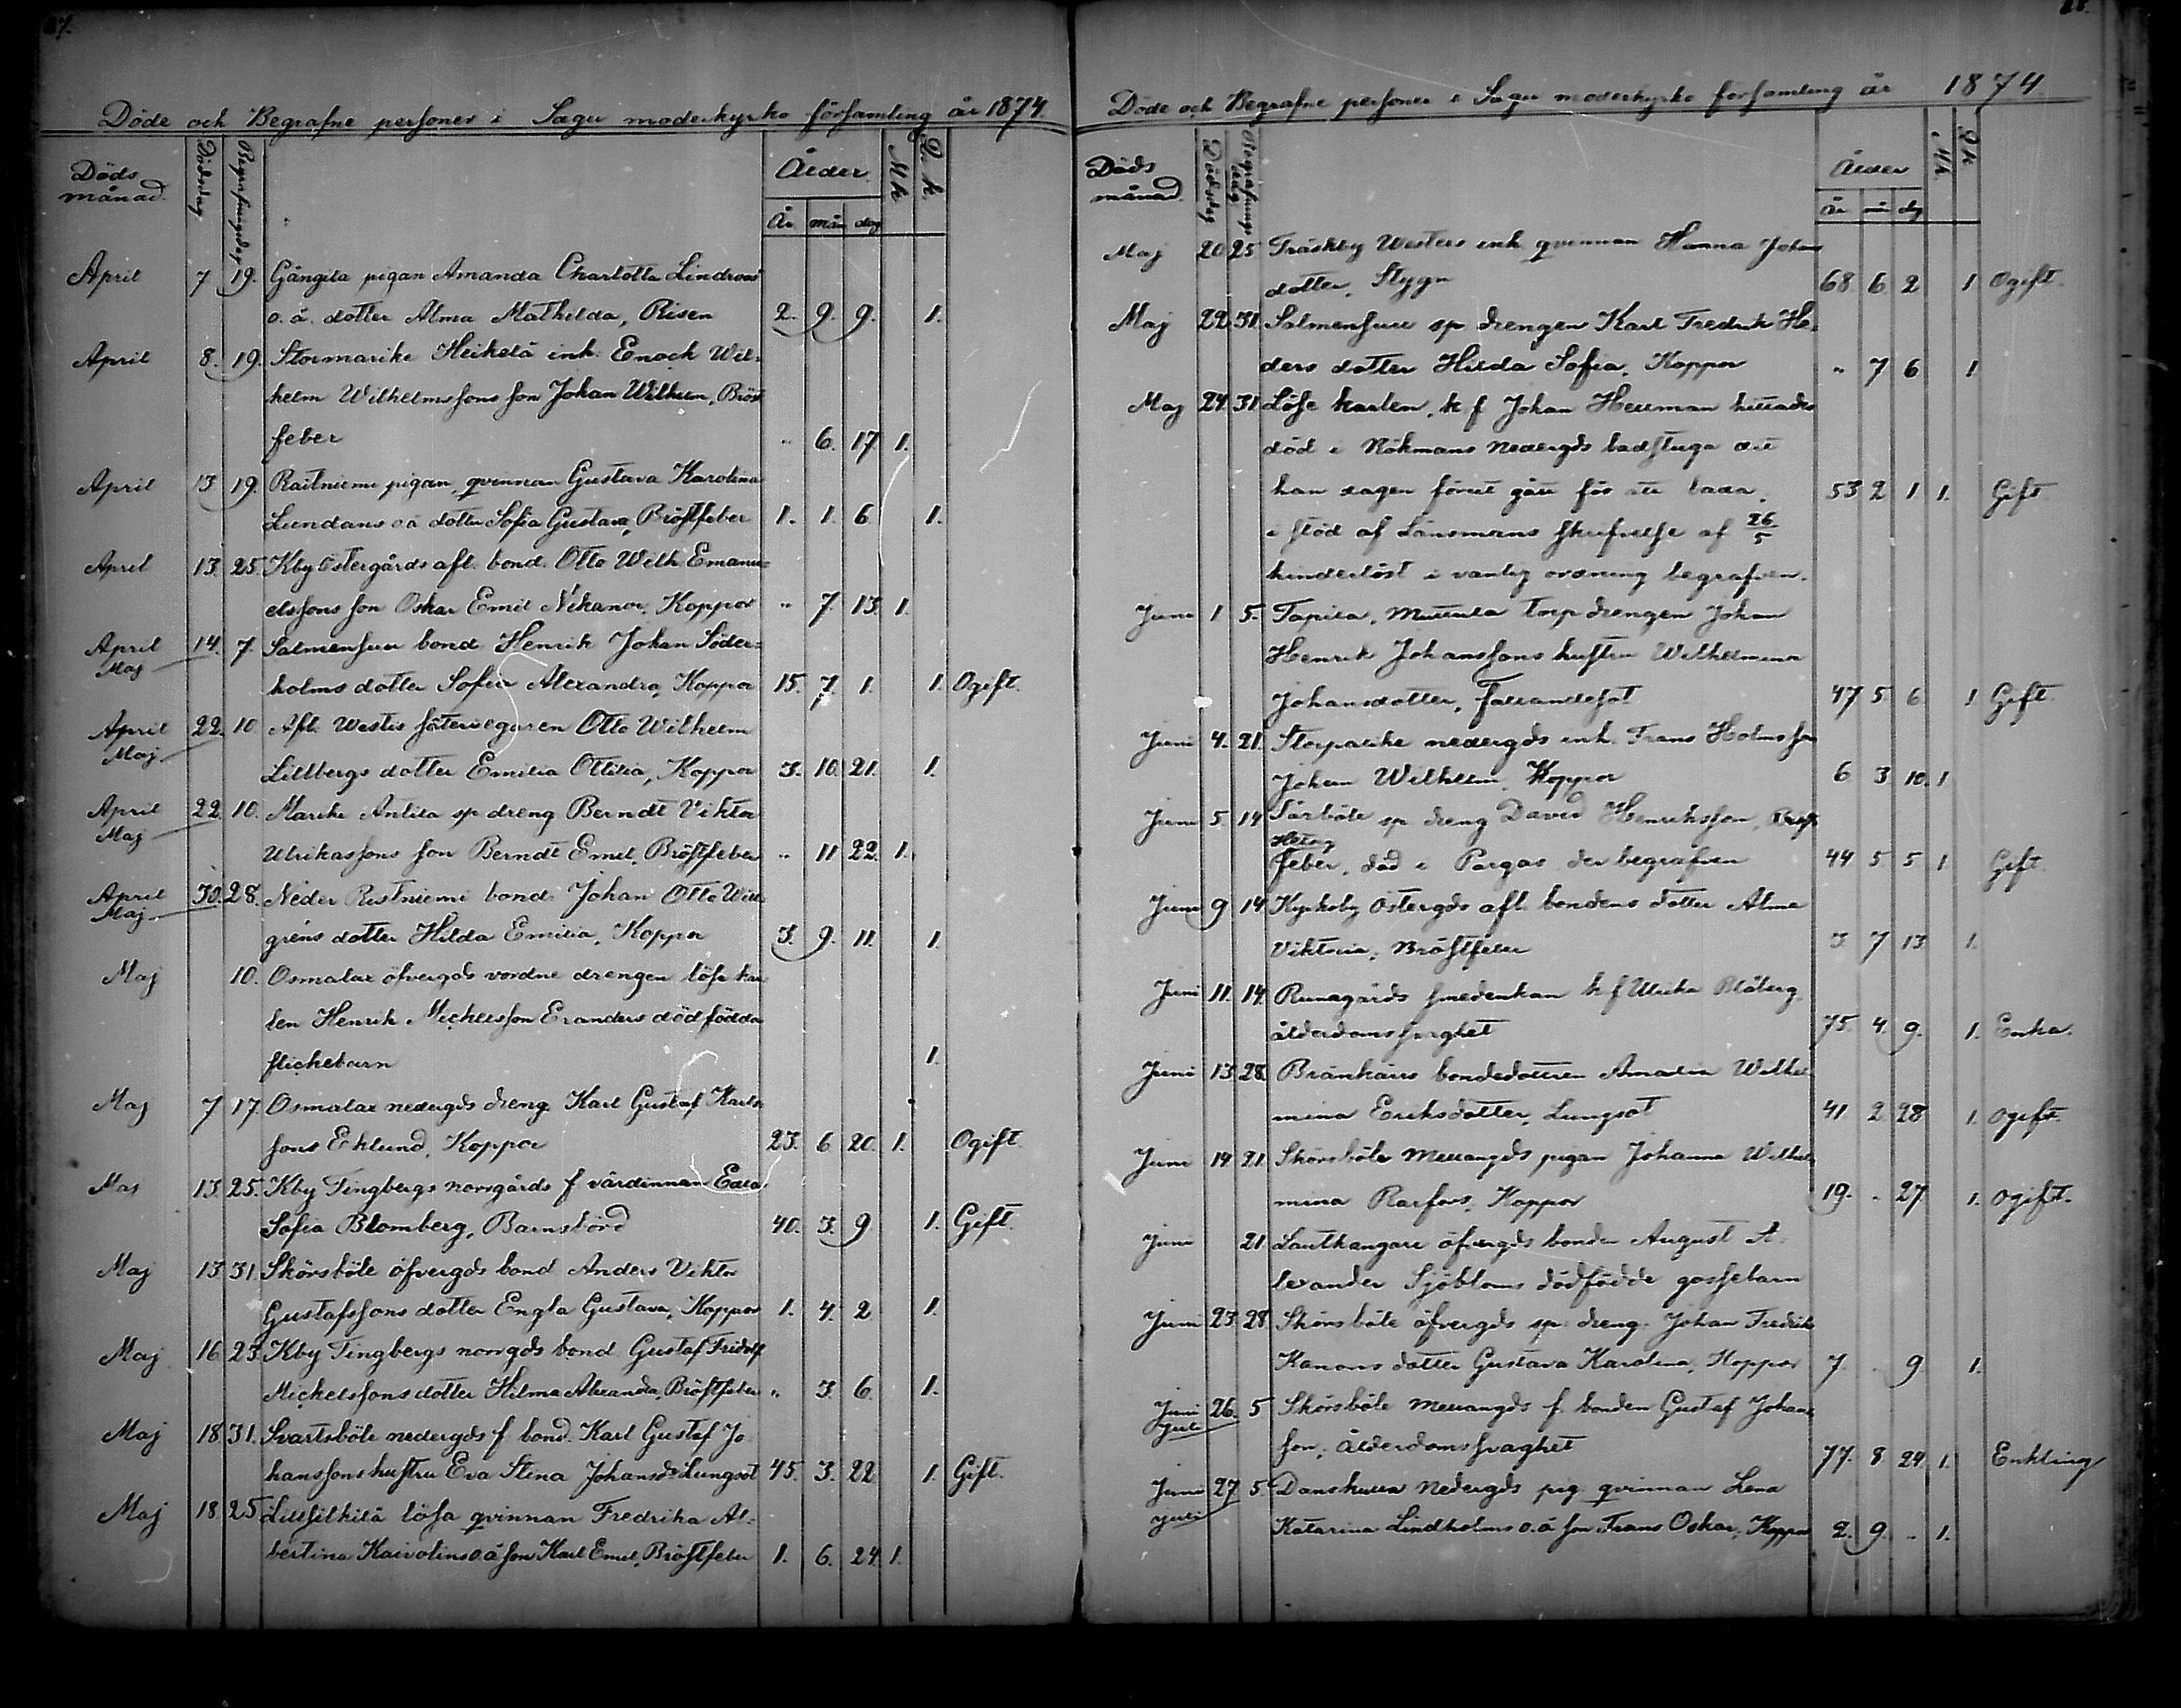 27.
Döde och Begrafne personer i Sagu moderkyrko församling år 1874
Döds månad. Dödsdag Begrafningsdag Ålder M.k. Q.k.
År mån dag
April 7 19. Gångila pigan Amanda Charlotta Lindroos
o.ä. dotter Alma Mathilda, Risen 2. 9. 9. 1.
April 8. 19. Stormarike Heikelä inh. Enock Wil-
helm Wilhelmssons son Johan Wilhelm, Bröst
feber " 6. 17 1.
April 13 19. Raitniemi pigan, qvinnan Gustava Karolina
Lundans o ä dotter Sofia Gustava, Bröstfeber 1. 1. 6. 1.
April 13. 25. Kby Östergårds afl. bond. Otto Wilh. Emanu-
elssons son Oskar Emil Nikanor, Koppor " 7. 13. 1.
April 14. 7. Salmensuu bond. Henrik Johan Söder-
Maj
holms dotter Sofia Alexandra, Koppor 15. 7. 1. 1. Ogift.
April 22. 10 Afl. Westis säteriegaren Otto Wilhelm
Maj
Lillbergs dotter Emilia Ottilia, Koppor 3. 10. 21. 1.
April 22. 10. Marike Antila sp dreng Berndt Viktor
Maj
Ulrikassons son Berndt Emil, Bröstfeber " 11 22. 1.
April 30. 28. Neder Ristniemi bond. Johan Otto Will-
Maj
gréns dotter Hilda Emilia, Koppor 3. 9. 11. 1.
Maj 10. Osmalax öfvergds vordne drengen löse kar
len Henrik Michelsson Eranders dödfödda
flickebarn 1.
Maj 7 17. Osmalax nedergds dreng Karl Gustaf Karls
sons Eklund, Koppor 23. 6 20. 1. Ogift.
Maj 13. 25. Kby Tingbergs norrgårds f värdinnan Edla
Sofia Blomberg, Barnsbörd 40. 3. 9 1. Gift.
Maj 13 31. Skörsböle öfvergds bond Anders Viktor
Gustafssons dotter Engla Gustava, Koppor 1. 4. 2 1.
Maj 16 23 Kby Tingbergs norrgds bond. Gustaf Fridolf
Mickelssons dotter Hilma Alexandra, Bröstfeber " 3. 6. 1.
Maj 18. 31. Svartsböle nedergds f bond. Karl Gustaf Jo
hanssons hustru Eva Stina Johansdr Lungsot 45. 3. 22 1. Gift.
Maj 18 25 Lillsilkilä lösa qvinnan Fredrika Al-
bertina Kaivolins o.ä son Karl Emil, Bröstfeber 1. 6. 24. 1.
28.
Döde och Begrafne personer i Sagu moderkyrko församling år 1874
Döds månad. Dödsdag Begrafnings dag Ålder M.k. Q.k.
År mån dag
Maj 20 25 Träskby Westers inh qvinnan Hanna Johans
dotter, Stygn 68 6 2 1 Ogift.
Maj 22. 31. Salmensuu sp drengen Karl Fredrik He-
ders dotter Hilda Sofia, Koppor " 7 6 1
Maj 24. 31 Löse karlen, k f Johan Herrman hittades
död i Rökmans nedergds badstuga dit
han dagen förut gått för att bada, 53 2 1 1. Gift
i stöd af Länsmans skrifvelse af 26/5
hinderlöst i vanlig ordning begrafven.
Juni 1 5. Tapila, Muurla torp drengen Johan
Henrik Johanssons hustru Wilhelmina
Johansdotter, Fallandesot 47 5. 6 1 Gift
Juni 4. 21. Storpatike nedergds inh. Frans Holms son
Johan Wilhelm, Koppor 6 3 10. 1.
Juni 5 14 Tärböle sp dreng David Henriksson,
Hetsig
feber, död i Pargas der begrafven 44 5. 5 1 Gift.
Juni 9 14 Kyrkoby Östergds afl. bondens dotter Alma
Viktoria, Bröstfeber 3 7 13 1.
Juni 11. 14. Runagårds smedenkan k f Ulrika Blåberg
ålderdomssvaghet 75. 4. 9. 1. Enka.
Juni 13 28. Brankärrs bondedottren Amalia Wilhel
mina Eriksdotter, Lungsot 41. 2 28 1. Ogift.
Juni 14. 21. Skörsböle Mellangds pigan Johanna Wilhel
mina Rarfors, Koppor 19. " 27 1. Ogift.
Juni 21. Lautkangare öfvergds bonden August A-
lexander Sjöbloms dödfödde gossebarn
Juni 23 28 Skörsböle öfvergds sp. dreng. Johan Fredrik
Kanons dotter Gustava Karolina, Koppor 7 " 9 1.
Juni 26. 5 Skörsböle Mellangds f. bonden Gustaf Johans
Juli
son, ålderdomssvaghet 77. 8. 24 1. Enkling
Juni 27 5. Danskulla Nedergds pig. qvinnan Lena
Juli
Katarina Lindholms o.ä son Frans Oskar, Koppor 2. 9. " 1.